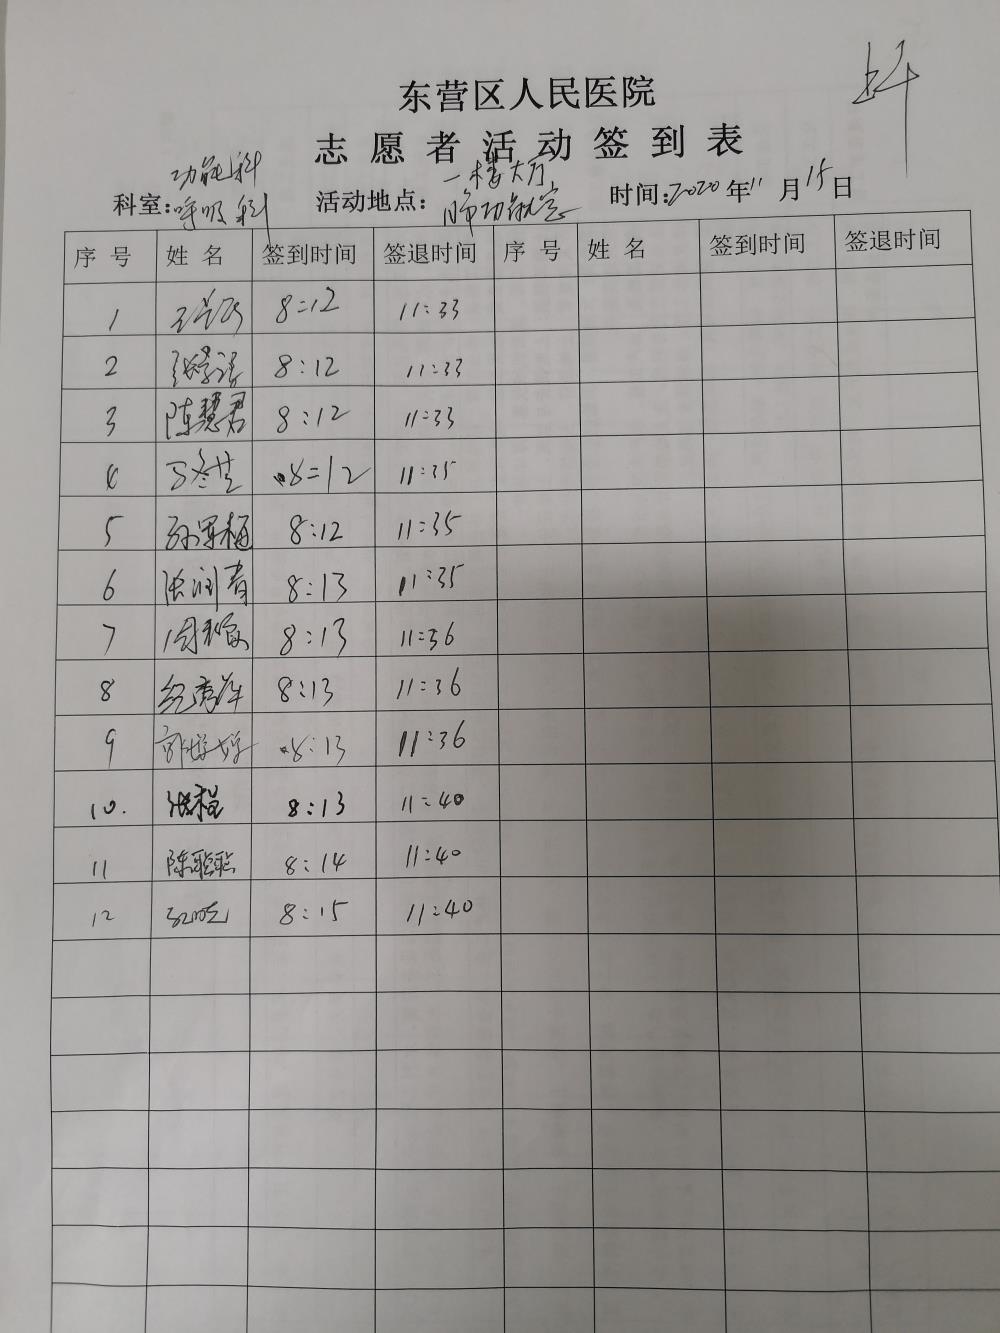 上午
东营区人民医院
志愿者活动签到表
功能科 一楼大厅
科室:呼吸科 活动地点:肺功能室 时间:2020年11月15日
序号 姓名 签到时间 签退时间 序号 姓名 签到时间 签退时间
1 8:12 11:33
2 8:12 11:33
3 陈慧君 8:12 11:33
4 8:12 11:35
5 孙军梅 8:12 11:35
6 张润青 8:13 11:35
7 8:13 11:36
8 纪秀萍 8:13 11:36
9 郭婷婷 8:13 11:36
10. 张程 8:13 11:40
11 陈聪聪 8:14 11:40
12 8:15 11:40